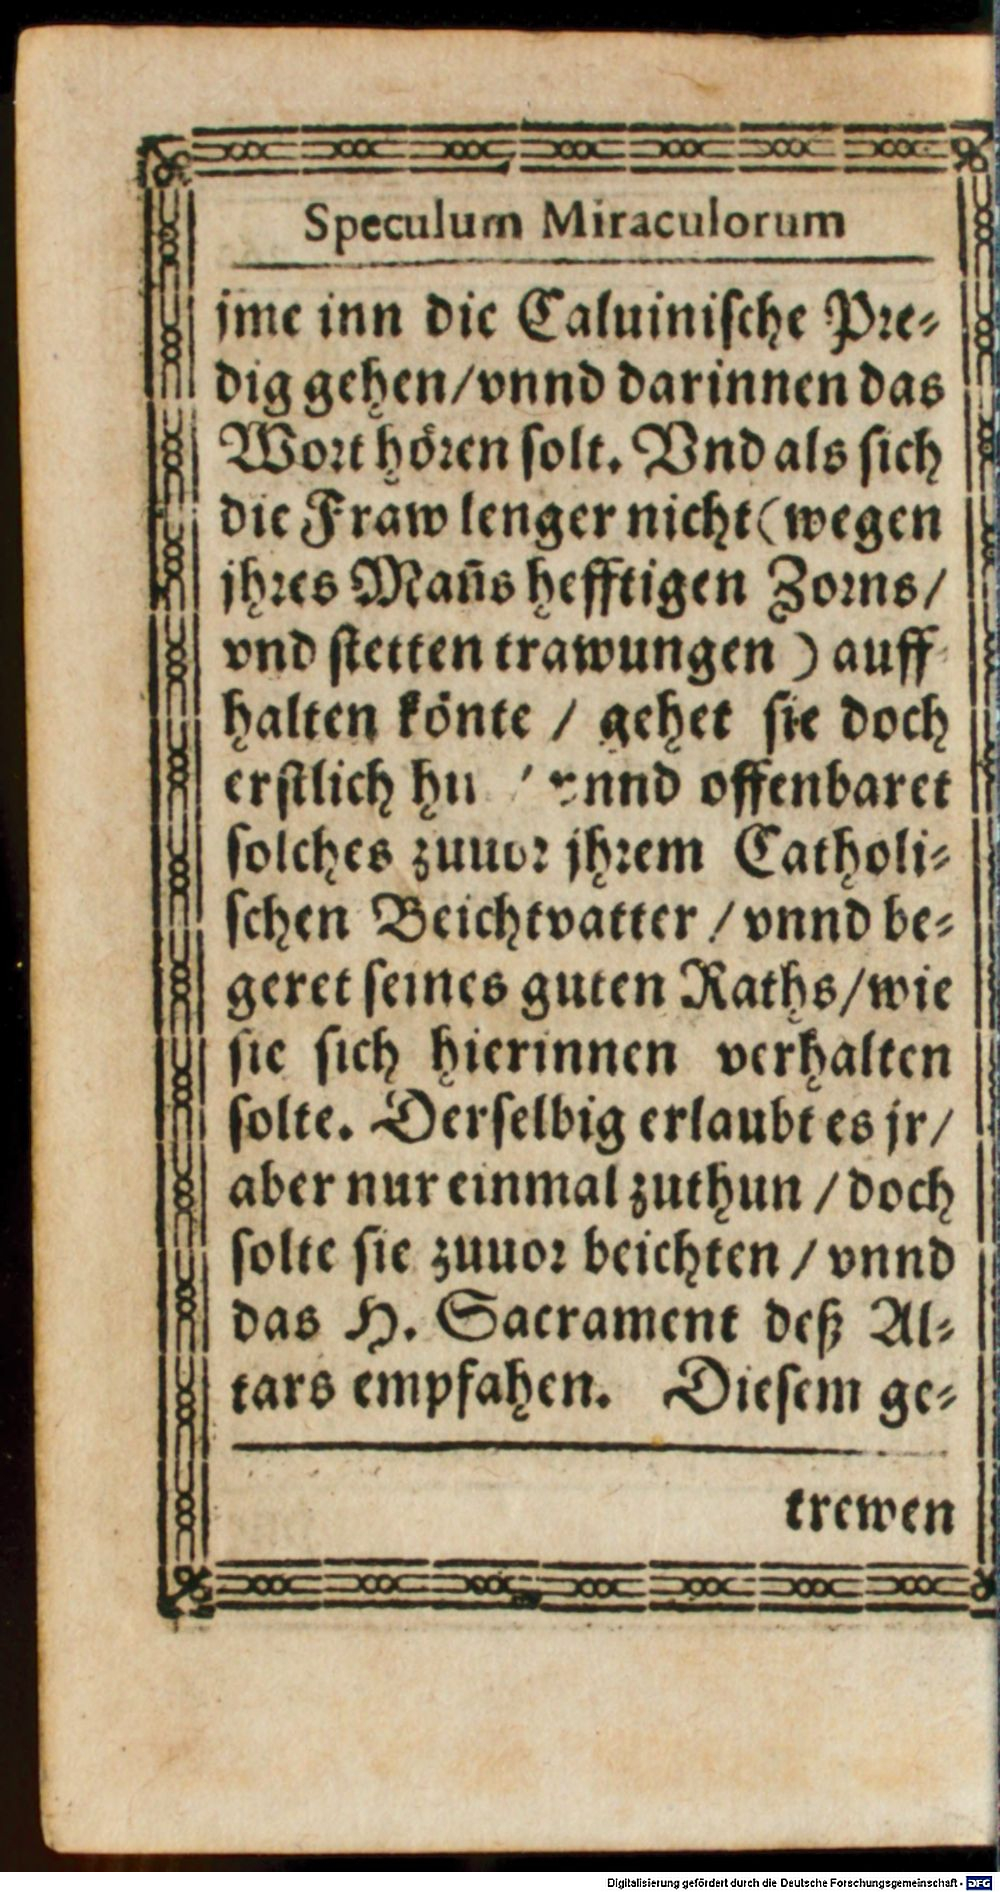 Speculum Miraculorum
jme inn die Caluinische Pre-
dig gehen/vnnd darinnen das
Wort hören solt. Vnd als sich
die Fraw lenger nicht (wegen
jhres Man̄s hefftigen Zorns/
vnd stetten trawungen) auff
halten könte / gehet sie doch
erstlich vnnd offenbaret
solches zuuor jhrem Catholi-
schen Beichtvatter / vnnd be-
geret seines guten Raths/wie
sie sich hierinnen verhalten
solte. Derselbig erlaubt es jr/
aber nur einmal zuthun / doch
solte sie zuuor beichten / vnnd
das H. Sacrament deß Al-
tars empfahen. Diesem ge-
trewen
Digitalisierung gefördert durch die Deutsche Forschungsgemeinschaft - DFG